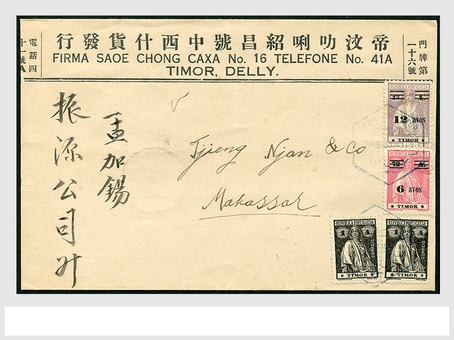 帝汶叻唎紹昌號中西什貨發行
門牌第一十六號
電話四十一號A
FIRMA SAOE CHONG CAXA No. 16 TELEFONE No. 41A
TIMOR, DELLY.
孟加錫
振源公司升
Tjieng Njan & Co
Makassar
12 AVOS
TIMOR
6 AVOS
TIMOR
1 A.
TIMOR
1 A.
TIMOR